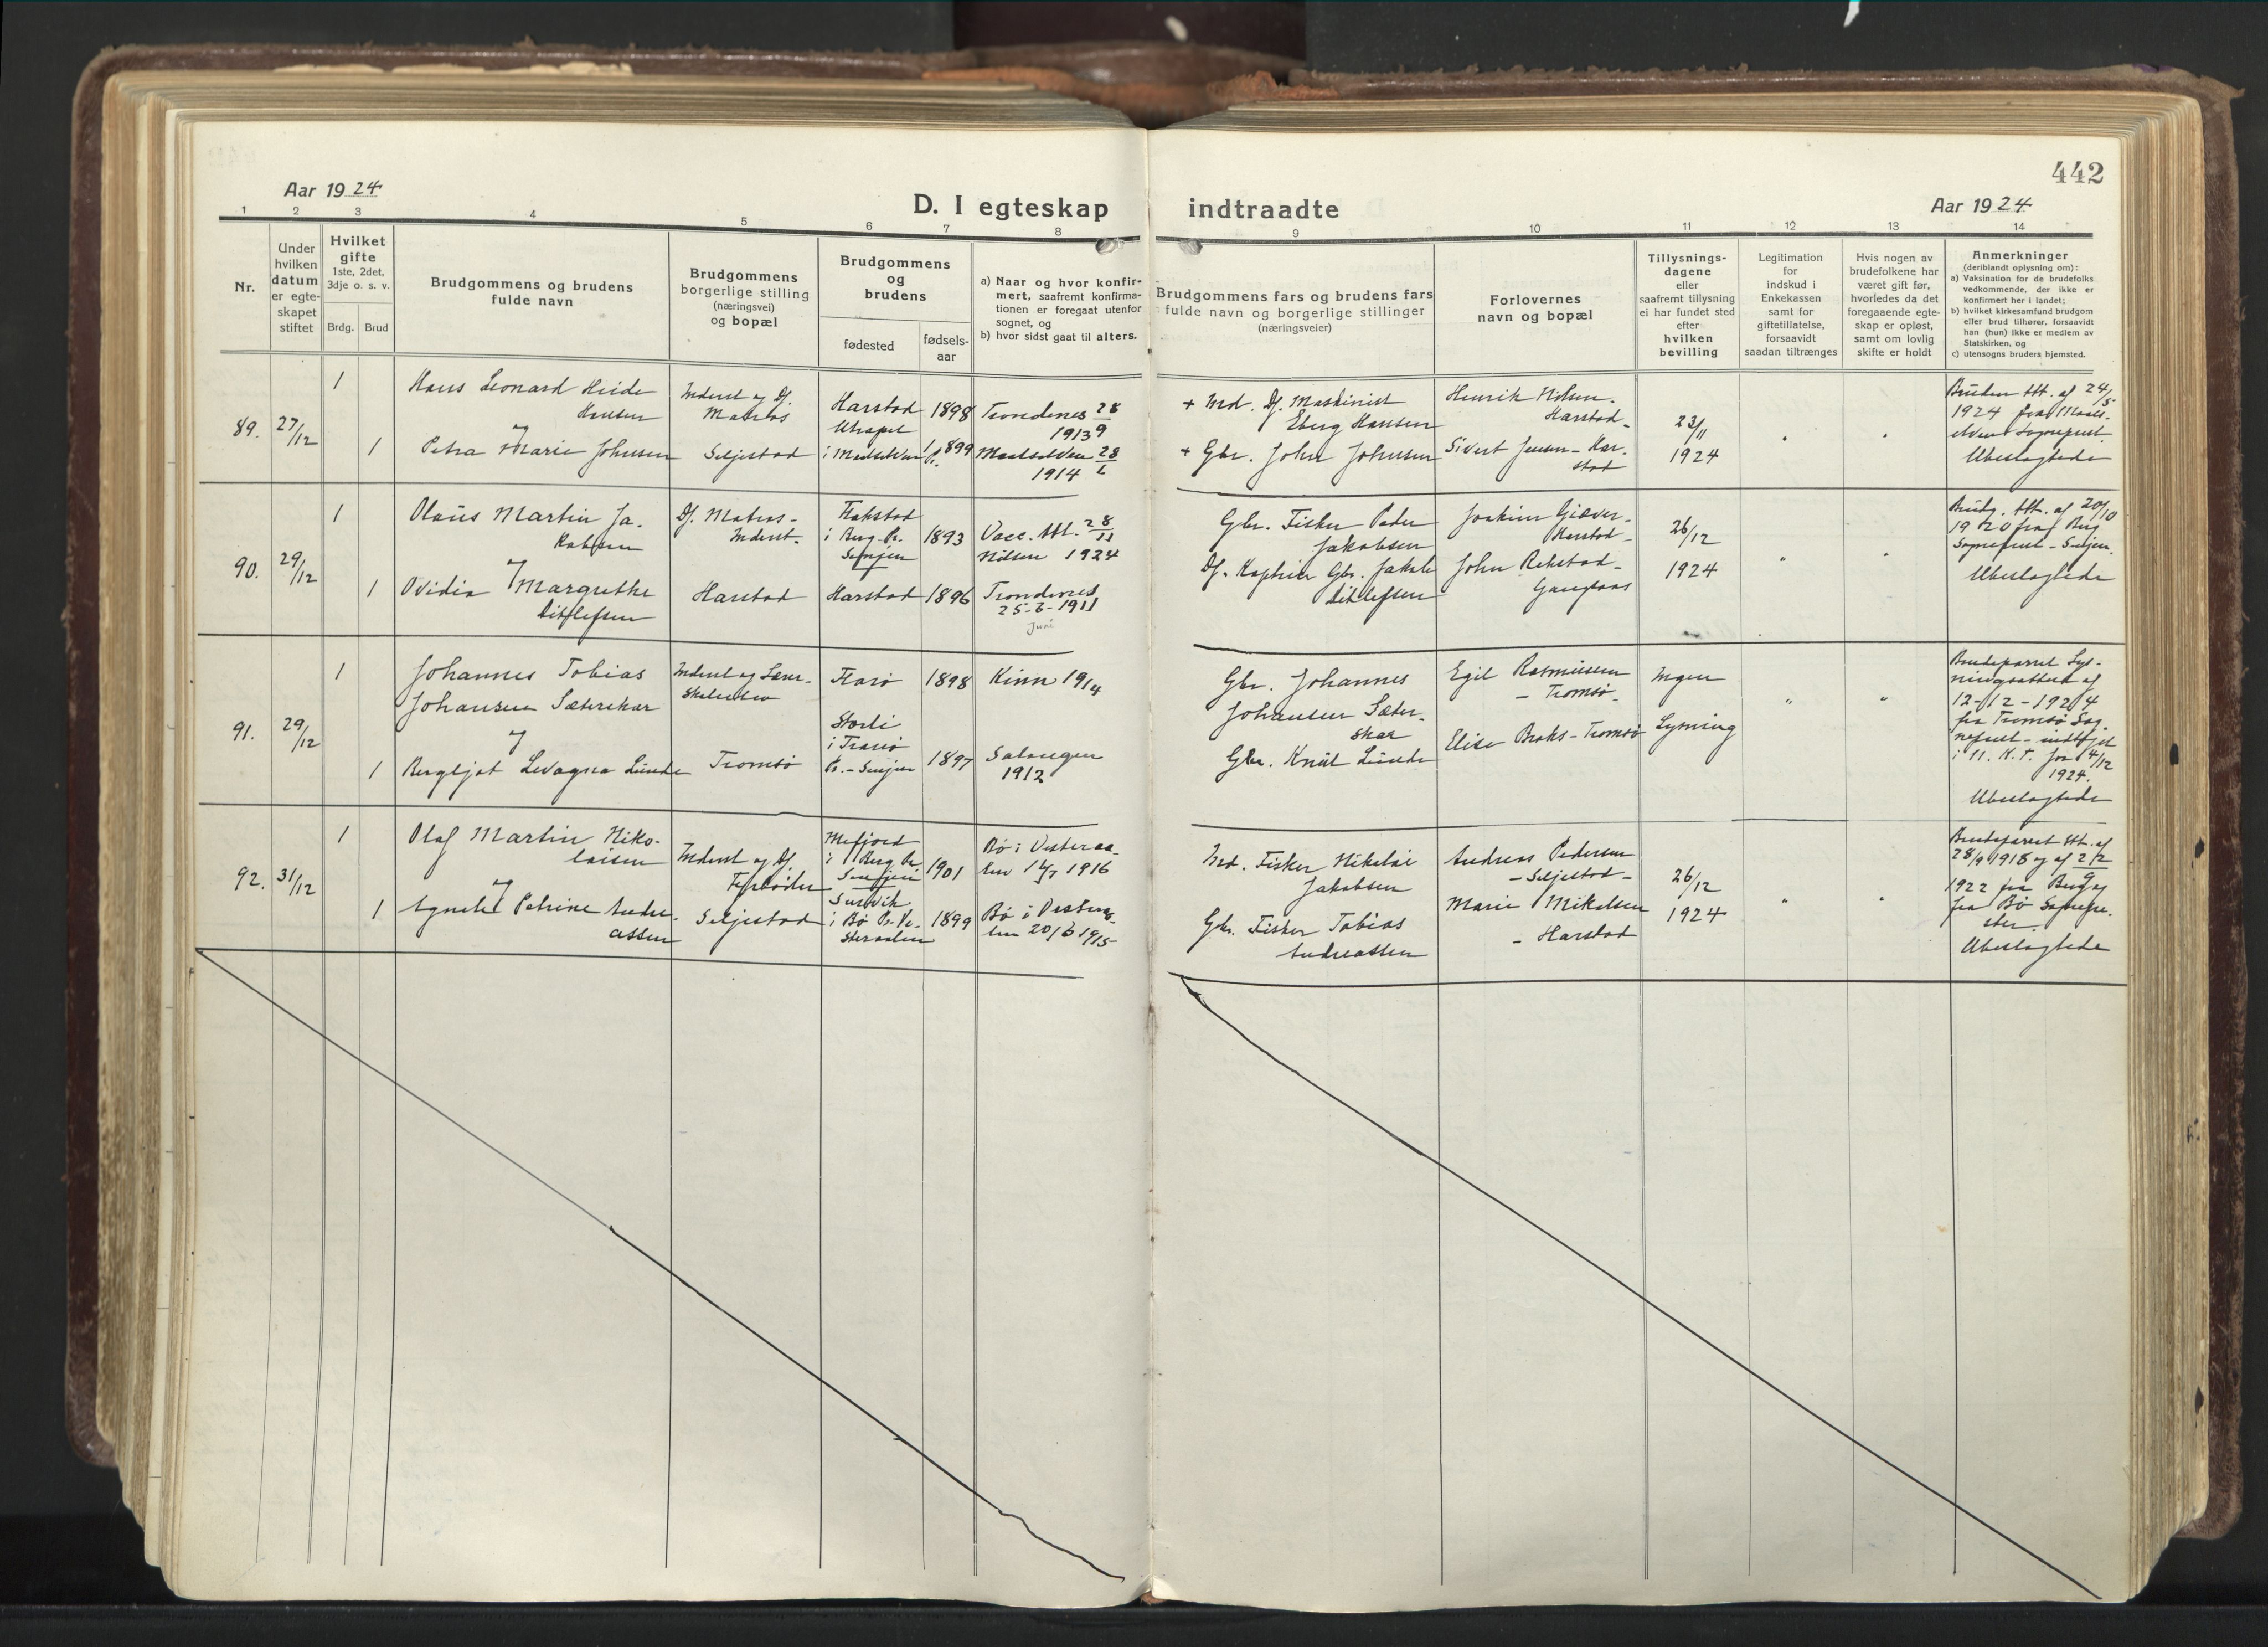 442
Aar 1924
D. I egteskap indtraadte
Aar 1924
1
2
3
4
5
6
7
8
9
10
11
12
13
14
Nr.
Under
hvilken
datum
er egte-
skapet
stiftet
Hvilket
gifte
1ste, 2det,
3dje o. s. v.
Brdg.
Brud
Brudgommens og brudens
fulde navn
Brudgommens
borgerlige stilling
(næringsvei)
og bopæl
Brudgommens
og
brudens
fødested
fødsels-
aar
a) Naar og hvor konfir-
mert, saafremt konfirma-
tionen er foregaat utenfor
sognet, og
b) hvor sidst gaat til alters.
Brudgommens fars og brudens fars
fulde navn og borgerlige stillinger
(næringsveier)
Forlovernes
navn og bopæl
Tillysnings-
dagene
eller
saafremt tillysning
ei har fundet sted
efter
hvilken
bevilling
Legitimation
for
indskud i
Enkekassen
samt for
giftetillatelse,
forsaavidt
saadan tiltrænges
Hvis nogen av
brudefolkene har
været gift før,
hvorledes da det
foregaaende egte-
skap er opløst,
samt om lovlig
skifte er holdt
Anmerkninger
(deriblandt oplysning om):
a) Vaksination for de brudefolks
vedkommende, der ikke er
konfirmert her i landet;
b) hvilket kirkesamfund brudgom
eller brud tilhører, forsaavidt
han (hun) ikke er medlem av
Statskirken, og
c) utensogns bruders hjemsted.
89.
27/12
1
Hans Leonard Heide
Hansen
Inderst og Df.
Matros
Harstad
1898
Trondenes 28/9
1913
1
Petra Marie Johnsen
Seljestad
i Maalselven Pr.
1899
Maalselven 28/6
1914
+ Ind. Df. Maskinist
Eberg Hansen
+ Gbr. John Johnsen
Henrik Nilsen -
Harstad -
Sivert Jensen - Har-
stad
23/11
1924
"
"
Bruden Att. af 24/5
1924 fra Maals-
elven Sogneprest.
Ubeslagtede
90.
29/12
1
Olaus Martin Ja-
kobsen
Df. Matros -
Inderst -
Flakstad
i Berg Pr.
Senjen
1893
Vacc. Att. 28/11
Nilsen 1924
1
Ovidia Margrethe
Ditlefsen
Harstad
Harstad
1896
Trondenes
25-6-1911
Juni
Gbr. Fisker Peder
Jakobsen
Df. Kaptein Gbr. Jakob
Ditlefsen
Joakim Giæver -
Harstad -
John Rekstad -
Gangsaas
26/12
1924
"
"
Brudg. Att. af 20/10
1920 fra Berg
Sogneprest - Senjen.
Ubeslagtede
91.
29/12
1
Johannes Tobias
Johansen Sæterskar
Inderst og Lærer-
skoleelev
Florø
1898
Kinn 1914
1
Bergljot Levagna Lunde
Tromsø
i Tranø
Pr. - Senjen
1897
Salangen
1912
Gbr. Johannes
Johansen Sæter-
skar
Gbr. Knut Lunde
Egil Rasmussen
- Tromsø -
Elise Braks - Tromsø
Ingen
Lysning
"
"
Brudeparret Lys-
ningsattest af
12-12-1924
fra Tromsø Sog-
neprest - indtaget
i N. K. T. for 4/12
1924.
Ubeslagtede
92.
31/12
1
Olaf Martin Niko-
laisen
Inderst og Df.
Fyrbøder
Mefjord
i Berg Pr.
Senjen
1901
Bø i Vesteraa-
len 1916
1
Agnete Petrine Andre-
assen
Seljestad
i Bø Pr. Ve-
steraalen
1899
Bø i Vesteraa-
len 20/6 1915
Ind. Fisker Nikolai
Jakobsen
Gbr. Fisker Tobias
Andreassen
Andreas Pedersen
- Seljestad -
Marie Mikalsen
- Harstad
26/12
1924
"
"
Brudeparret Att. af
28/9 1918 og af 22/9
1922 fra Berg og
fra Bø Sognepre-
ster.
Ubeslagtede